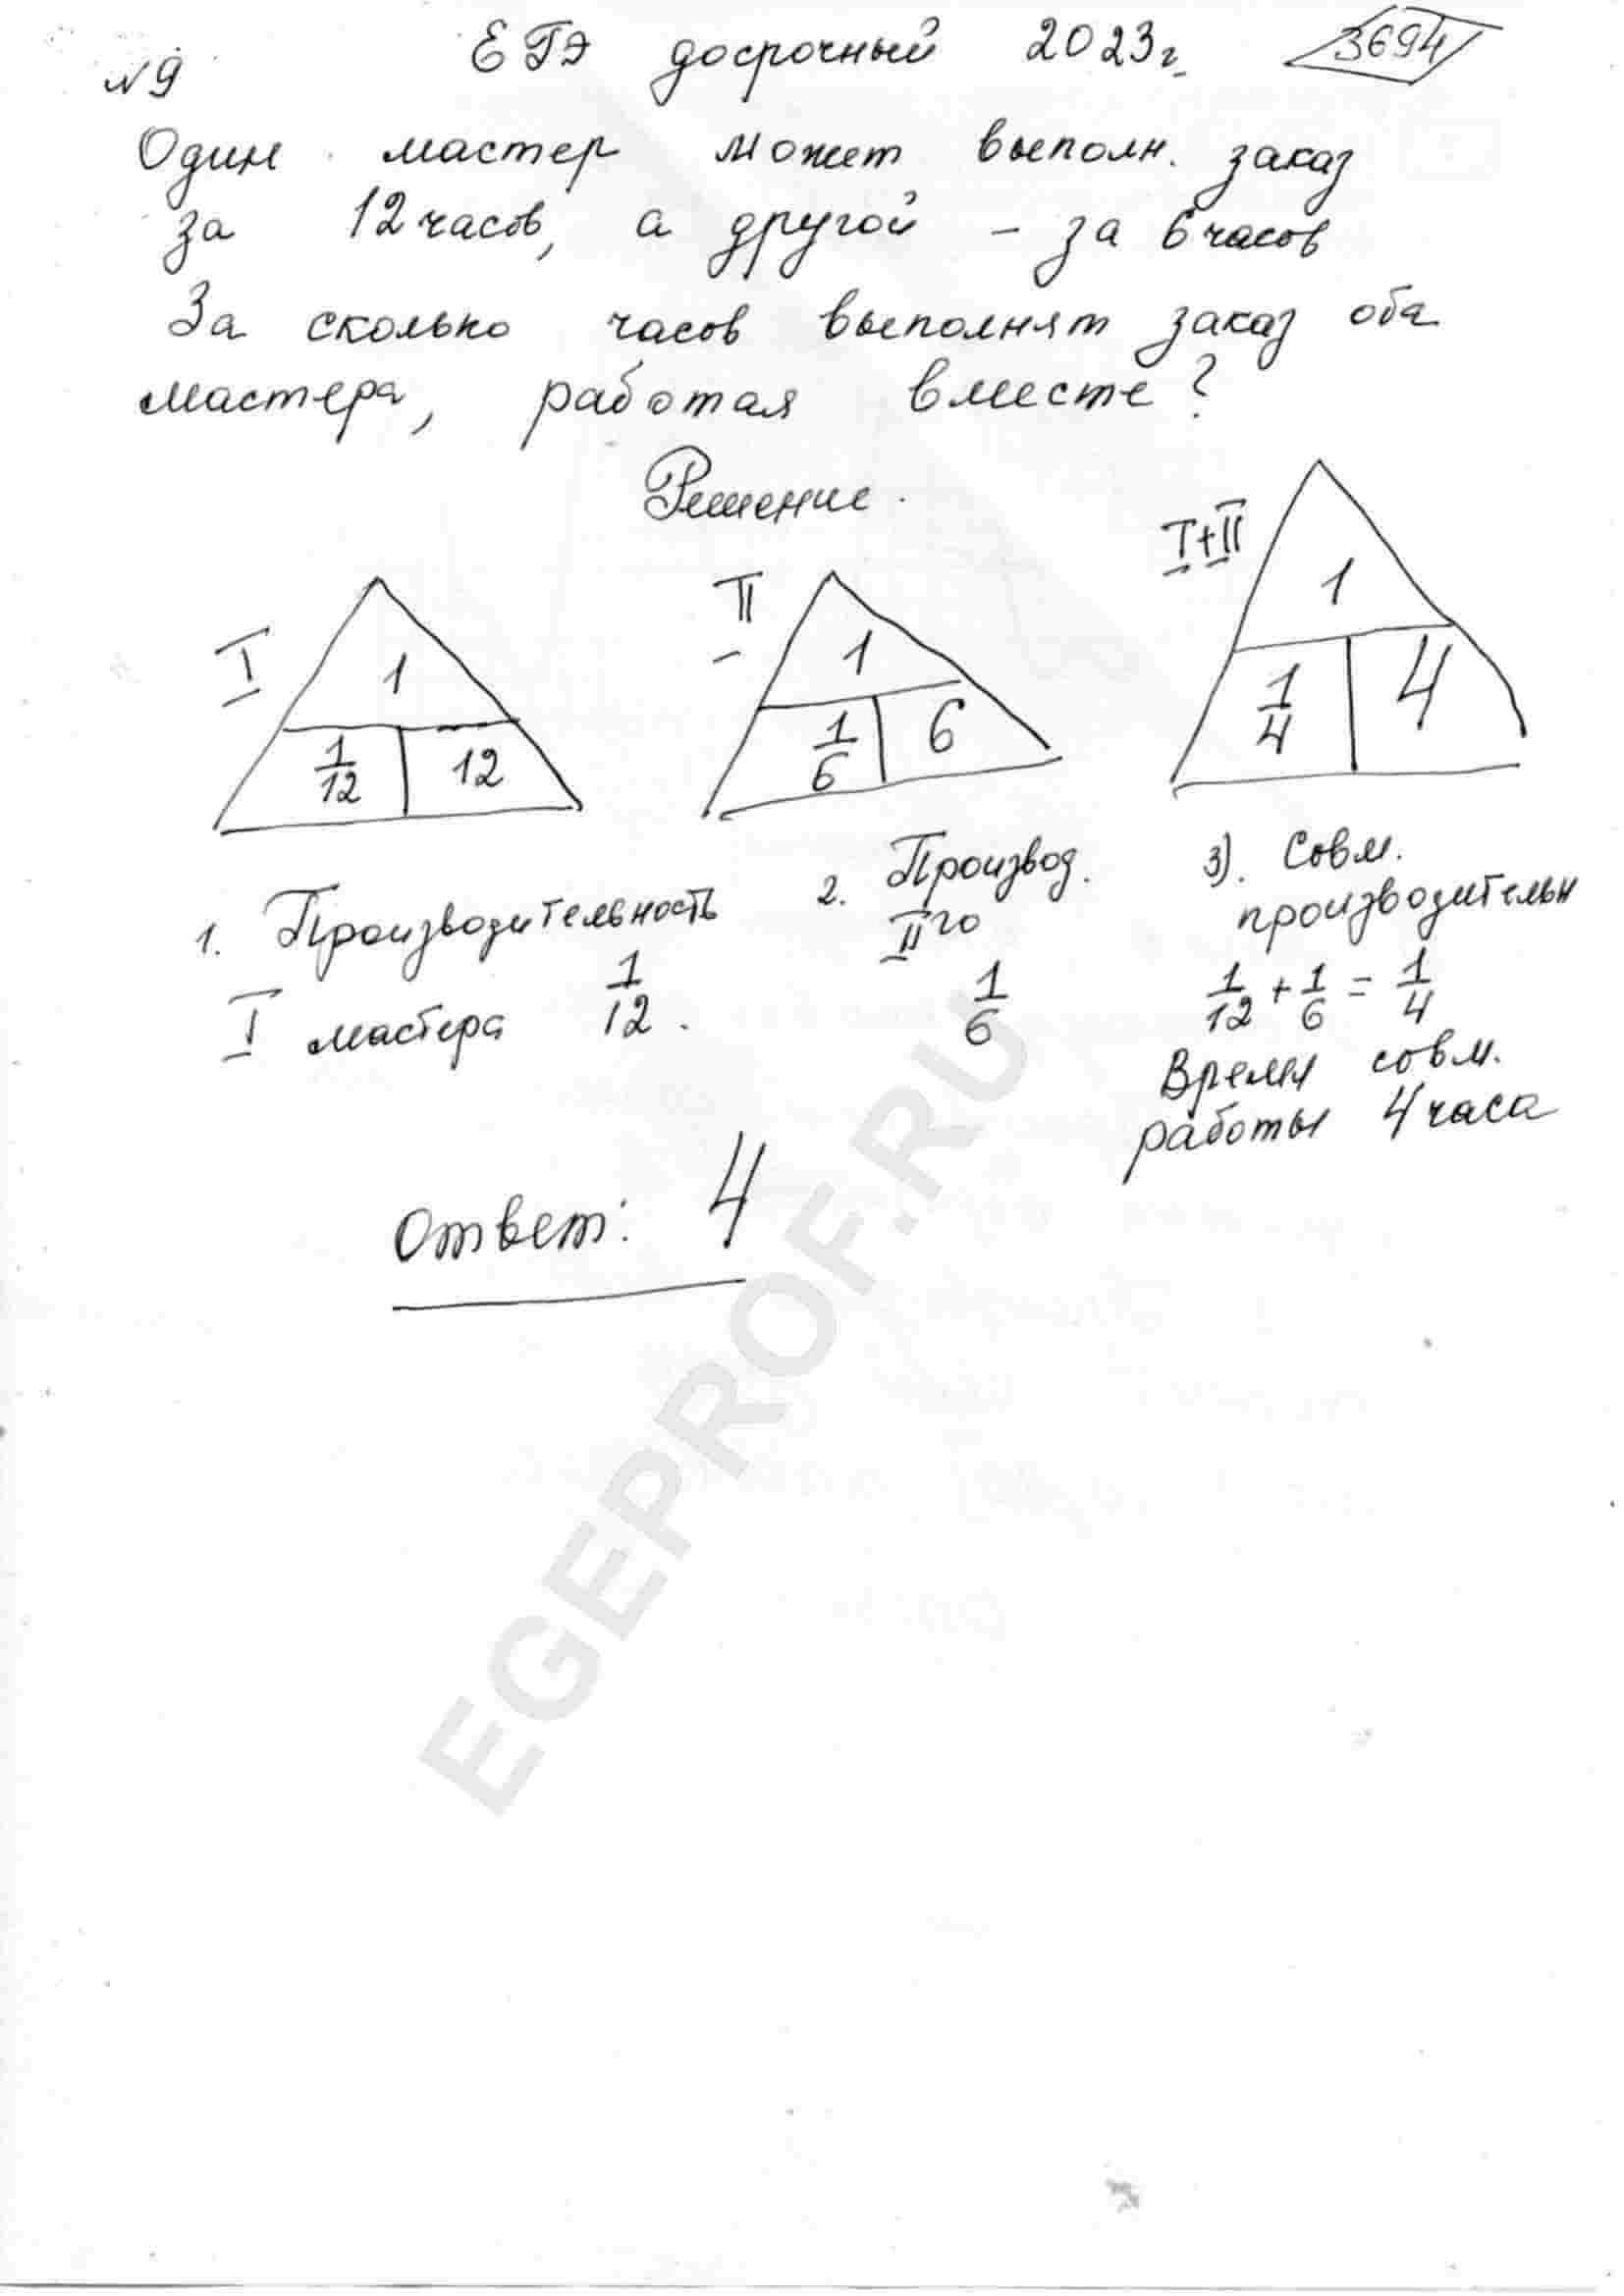 ЕГЭ досрочный 2023г. 3694
№9
Один мастер может выполн. заказ
за 12 часов, а другой - за 6 часов
За сколько часов выполнят заказ оба
мастера, работая вместе?
Решение.
I
1
1/12 12
II
1
1/6 6
I+II
1
1/4 4
1. Производительность
I мастера 1/12.
2. Производ.
II го
1/6
3). Совм.
производительн
1/12 + 1/6 = 1/4
Время совм.
работы 4 часа
Ответ: 4
EGEPROF.RU